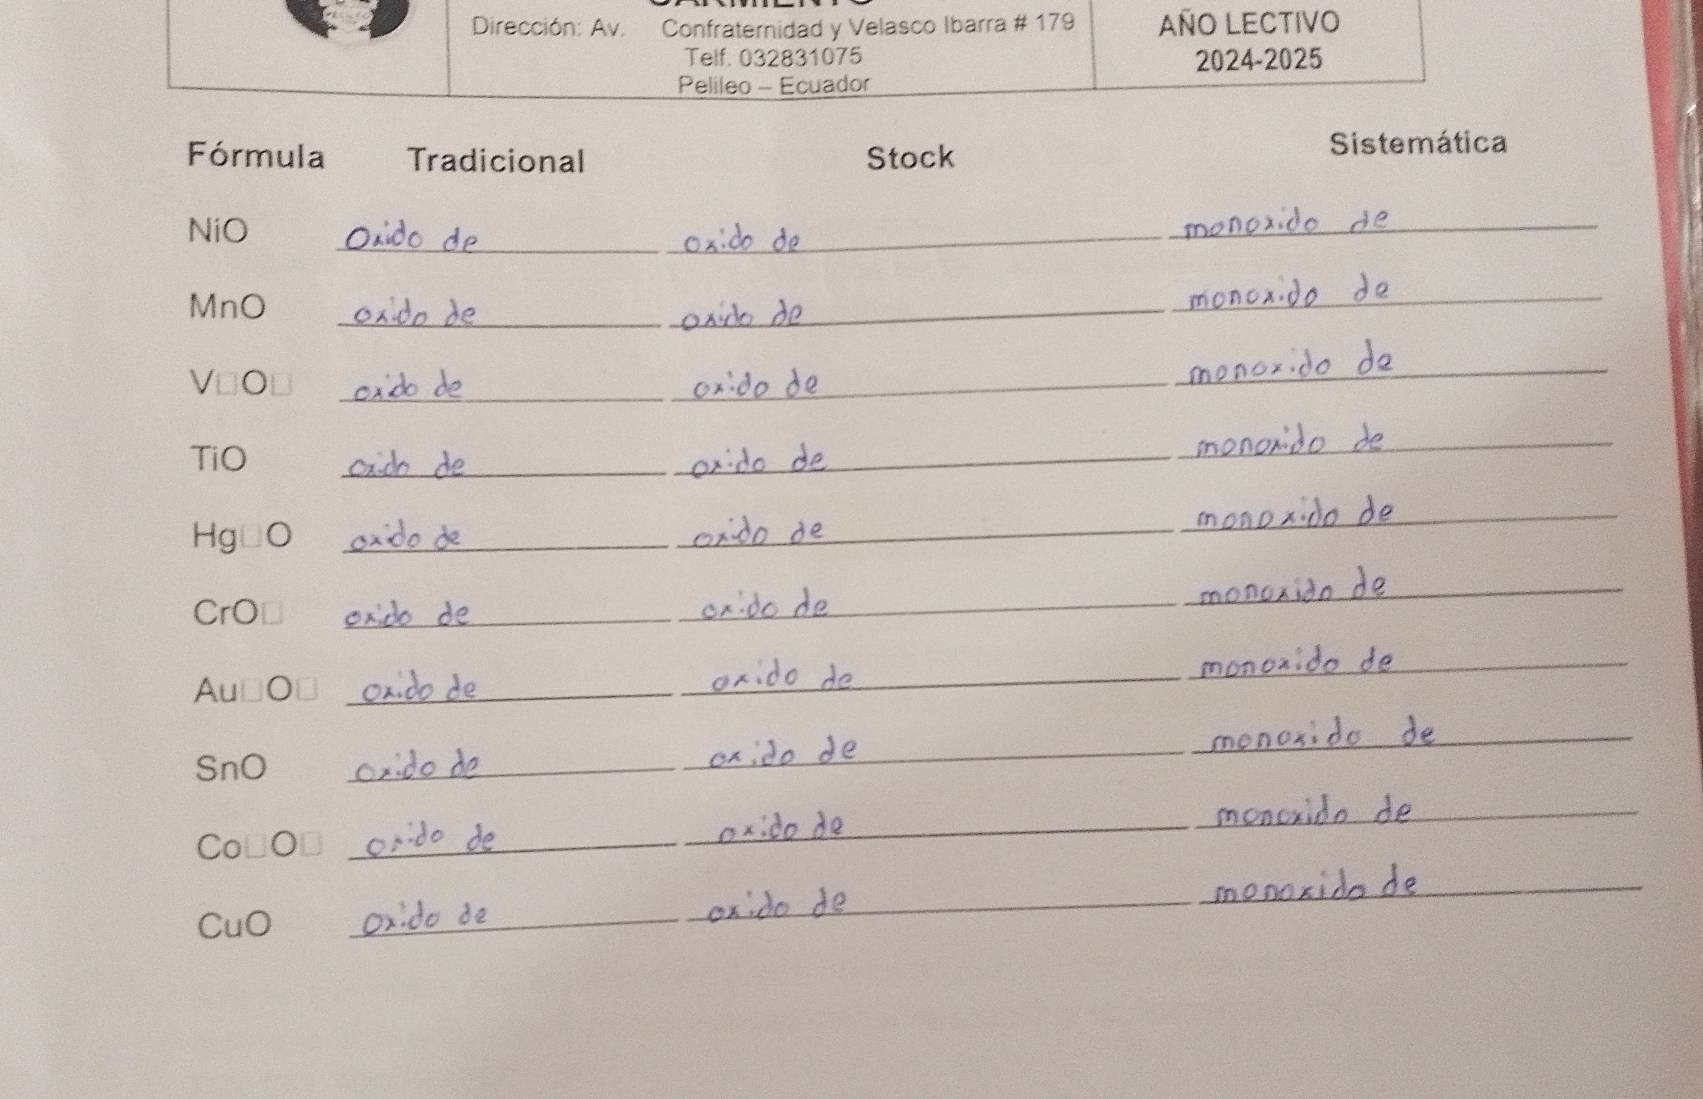 Dirección: Av. Confraternidad y Velasco Ibarra # 179 AÑO LECTIVO
Telf. 032831075 2024-2025
Pelileo – Ecuador
Fórmula Tradicional Stock Sistemática
NiO Oxido de oxido de monoxido de
MnO oxido de oxido de monoxido de
V□O□ oxido de oxido de monoxido de
TiO oxido de oxido de monoxido de
Hg□O oxido de oxido de monoxido de
CrO□ oxido de oxido de monoxido de
Au□O□ oxido de oxido de monoxido de
SnO oxido de oxido de monoxido de
Co□O□ oxido de oxido de monoxido de
CuO oxido de oxido de monoxido de